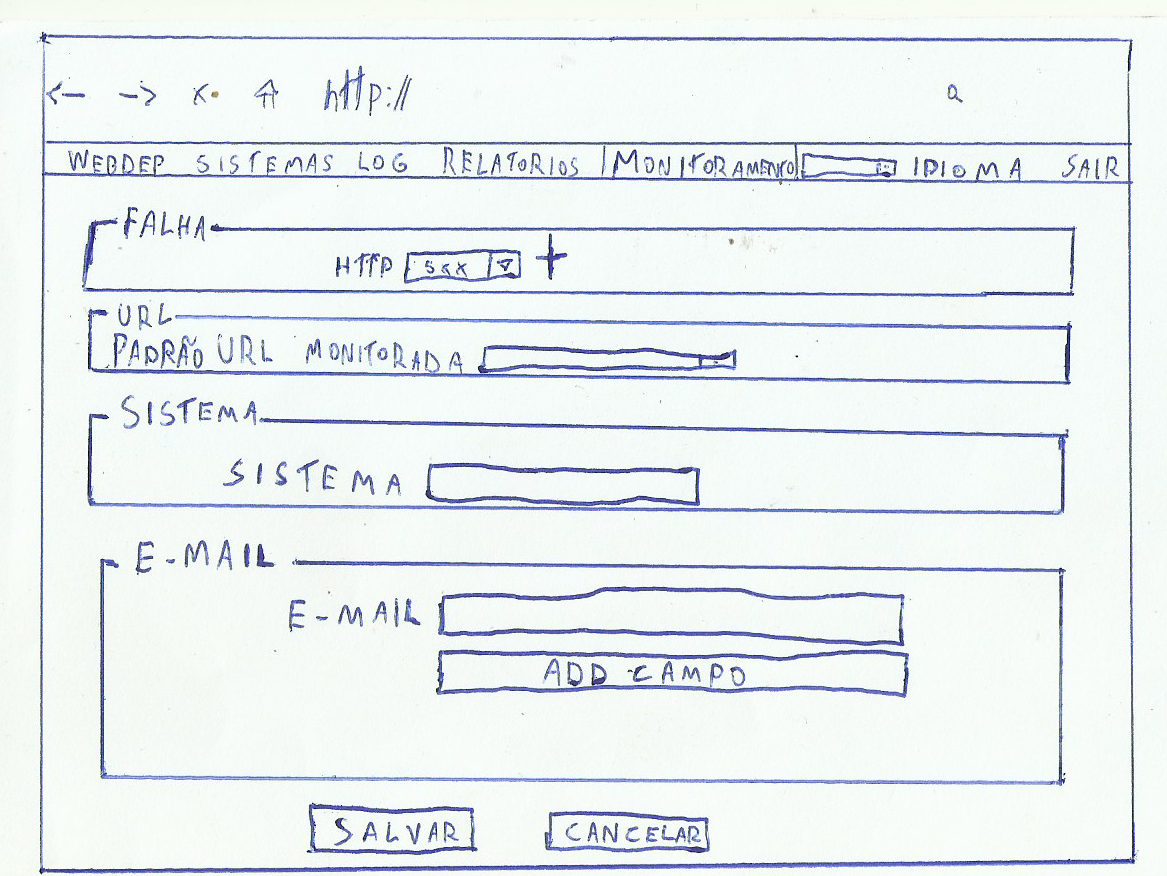 http://
WEBDEP SISTEMAS LOG RELATORIOS MONITORAMENTO IDIOMA SAIR
FALHA
HTTP 5xx
URL
PADRÃO URL MONITORADA
SISTEMA
SISTEMA
E-MAIL
E-MAIL
ADD CAMPO
SALVAR CANCELAR